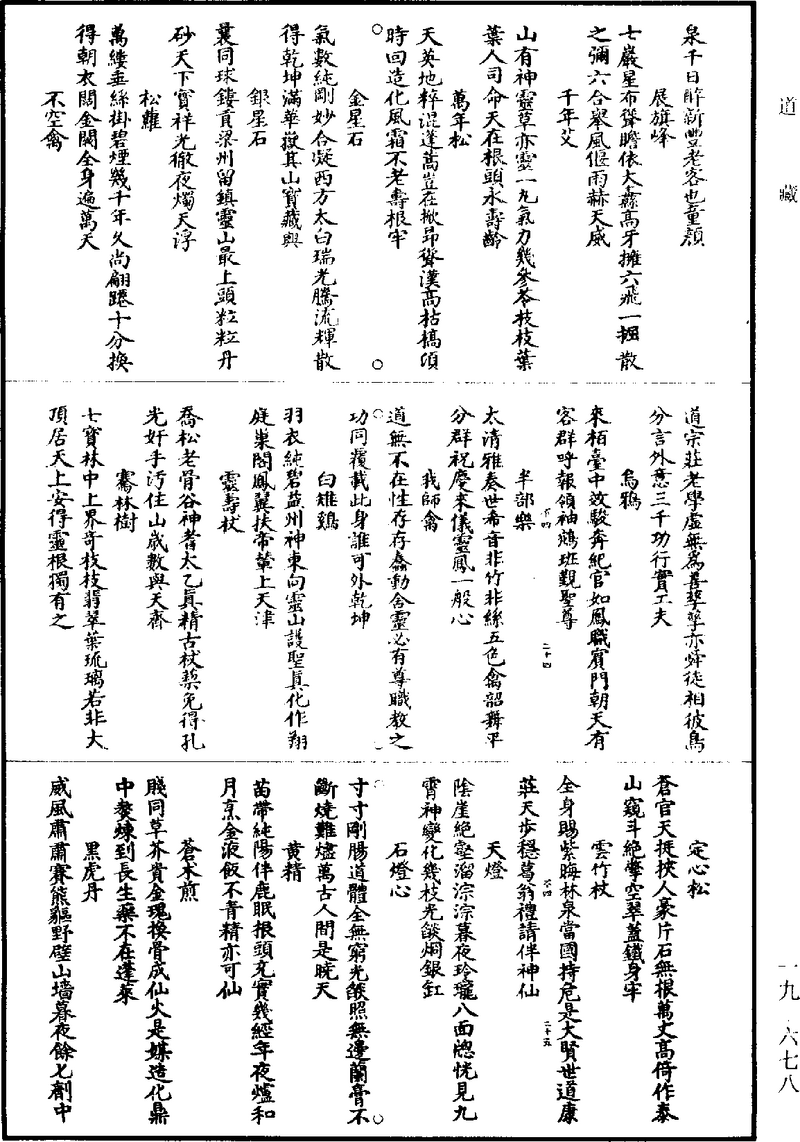 道藏
泉千日醉新豐老客也童顔
展旗峰
七巖星布聳瞻依大纛高牙擁六飛一掃散
之彌六合衆風偃雨赫天威
千年艾
山有神靈草亦靈一丸氣力幾參苓枝枝葉
葉人司命天在根頭永壽齡
萬年松
天英地粹混蓬蒿豈在掀昻聳漢高枯槁頃
時回造化風霜不老壽根牢
金星石
氣數純剛妙合凝西方太白瑞光騰流輝散
得乾坤滿華嶽其山寶藏興
銀星石
曩同球鏤貢梁州留鎮靈山最上頭粒粒丹
砂天下寶祥光徹夜燭天浮
松蘿
萬縷垂絲掛碧煙幾千年久尚翩躚十分換
得朝衣闊金闕全身遍萬天
不空禽
道宗莊老學虛無爲善孳孳亦舜徒相彼鳥
分言外意三千功行實工夫
烏鴉
來栢臺中政駿奔紀官如鳳職賓門朝天有
客群呼報領袖鵷班覲聖尊
半部樂
太清雅奏世希音非竹非絲五色禽韶舞平
分群祝慶來儀靈鳳一般心
我師禽
道無不在性存存蠢動含靈必有尊職教之
功同覆載此身誰可外乾坤
白雉鷄
羽衣純碧益州神東向靈山護聖真化作翔
庭巢閣鳳翼扶帝輦上天津
靈壽杖
喬松老骨谷神耆太乙真精古杖藜免得孔
光奸手汚住山歲數與天齊
騫林樹
七寶林中上界奇枝枝翡翠葉琉璃若非大
頂居天上安得靈根獨有之
定心松
蒼官天挺挾人豪片石無根萬丈高倚作泰
山窺斗絶擎空翠蓋鐵身牢
雲竹杖
全身賜紫晦林泉當國持危是大賢世道康
莊天步穩葛翁禮請伴神仙
天燈
陰崖絶壑溜淙淙暮夜玲瓏八面牕恍見九
霄神變化幾枝光燄烱銀釭
石燈心
寸寸剛腸道體全無窮光燄照無邊蘭膏不
斷燒難燼萬古人間是曉天
黄精
苗帶純陽伴鹿眠根頭充實幾經年夜爐和
月烹金液飯不青精亦可仙
蒼术煎
賤同草芥貴金瑰換骨成仙火是媒造化鼎
中熬煉到長生藥不在蓬萊
黑虎丹
威風肅肅賽熊驅野壁山墻暮夜餘七劑中
一九六七八